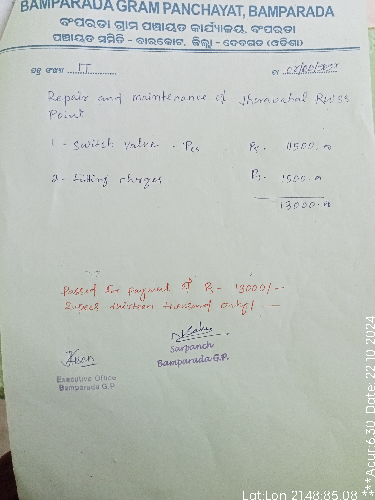 BAMPARADA GRAM PANCHAYAT, BAMPARADA
ବଂପରଡା ଗ୍ରାମ ପଞ୍ଚାୟତ କାର୍ଯ୍ୟାଳୟ, ବଂପରଡା
ପଞ୍ଚାୟତ ସମିତି - ବାରକୋଟ, ଜିଲ୍ଲା - ଦେବଗଡ (ଓଡିଶା)
ପତ୍ର ସଂଖ୍ୟା
ତା
Repair and maintenance of
Point
1 - Switch valve - Pcs Rs. 11500.00
2 - fitting charges Rs. 1500.00
13000.00
Passed for payment of Rs - 13000/-
Rupees thirteen thousand only/-
Sarpanch
Bamparada G.P.
Executive Office
Bamparada G.P
Lat:Lon 2148:85.08
**Acur:6.30 Date: 22.10.2024